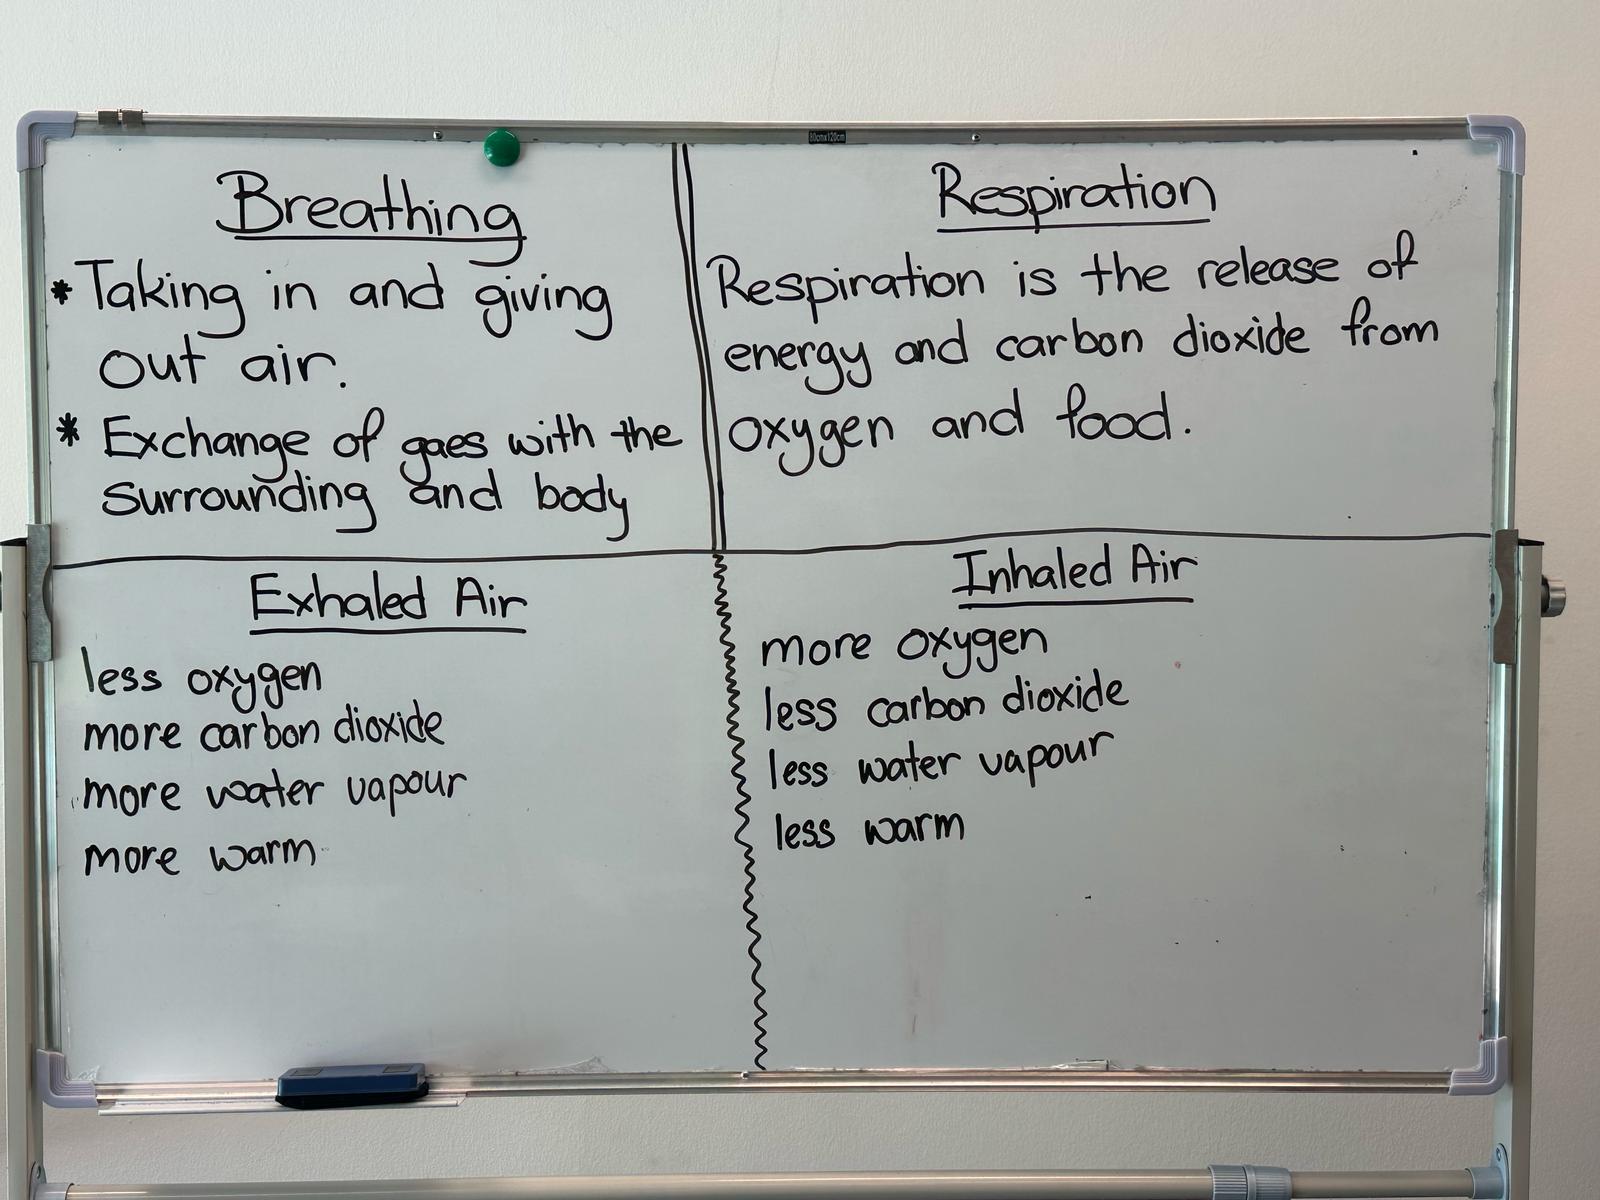 Breathing
* Taking in and giving
out air.
* Exchange of gaes with the
surrounding and body
Respiration
Respiration is the release of
energy and carbon dioxide from
oxygen and food.
Exhaled Air
less oxygen
more carbon dioxide
more water vapour
more warm
Inhaled Air
more oxygen
less carbon dioxide
less water vapour
less warm
80cmx120cm